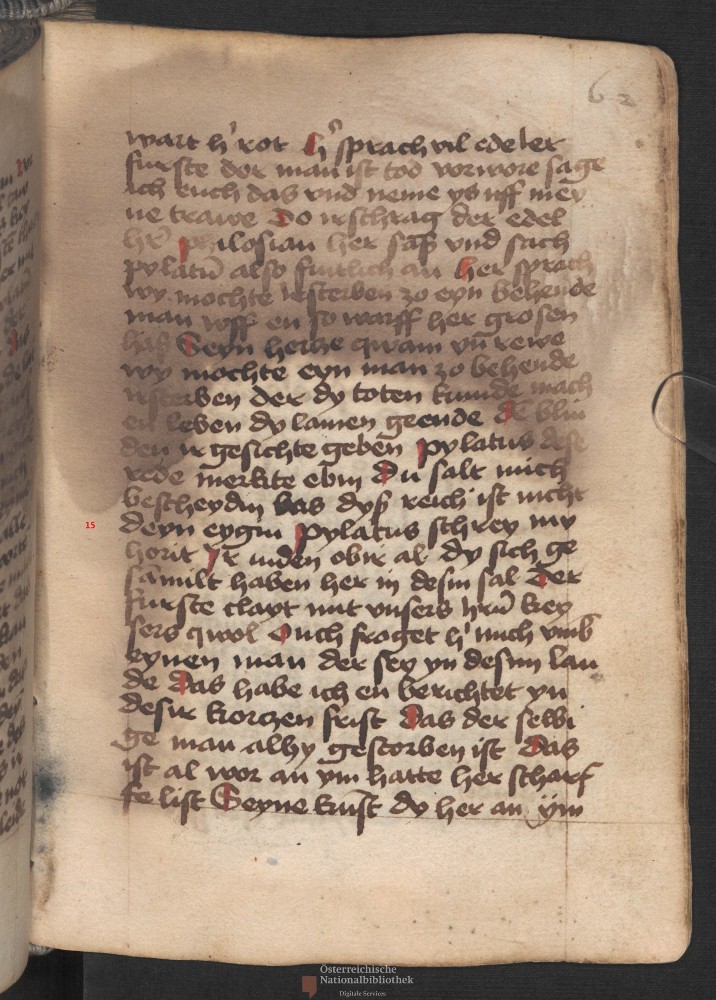 62
wart h' rot h' sprach vil edeler
furste der man ist tod vorwore sage
ich euch das vnd neme ys uff mey
ne trawe Do irschrag der edel
hr̄ philosian her sas vnd sach
pylatū also fintlich an her sprach
wy mochte irsterben zo eyn behende
man wff en so warff her grosen
has Seyn hercze qwam vn̄ rewe
wy mochte eyn man zo behende
irsterben der dy toten kunde mach
en leben dy lamen geende de blin
den ir gesichte geben pylatus dese
rede merkte ebin Du salt mich
bescheydin bas dys reich ist nicht
15
deyn eygin Pylatus schrey my
horit yr iuden obir al dy sich ge
samilt haben her in desin sal Der
furste clayt mit vnsers hrn̄ key
sers qwol Ouch froget h' mich vmb
eynen man der sey yn desim lan
de Das habe ich en berichtet yn
desir korczen frist Das der selbi
ge man alhy gestorben ist Das
ist al wor an ym hatte her scharf
fe list Seyne kunst dy her an ym
Österreichische
Nationalbibliothek
Digitale Services